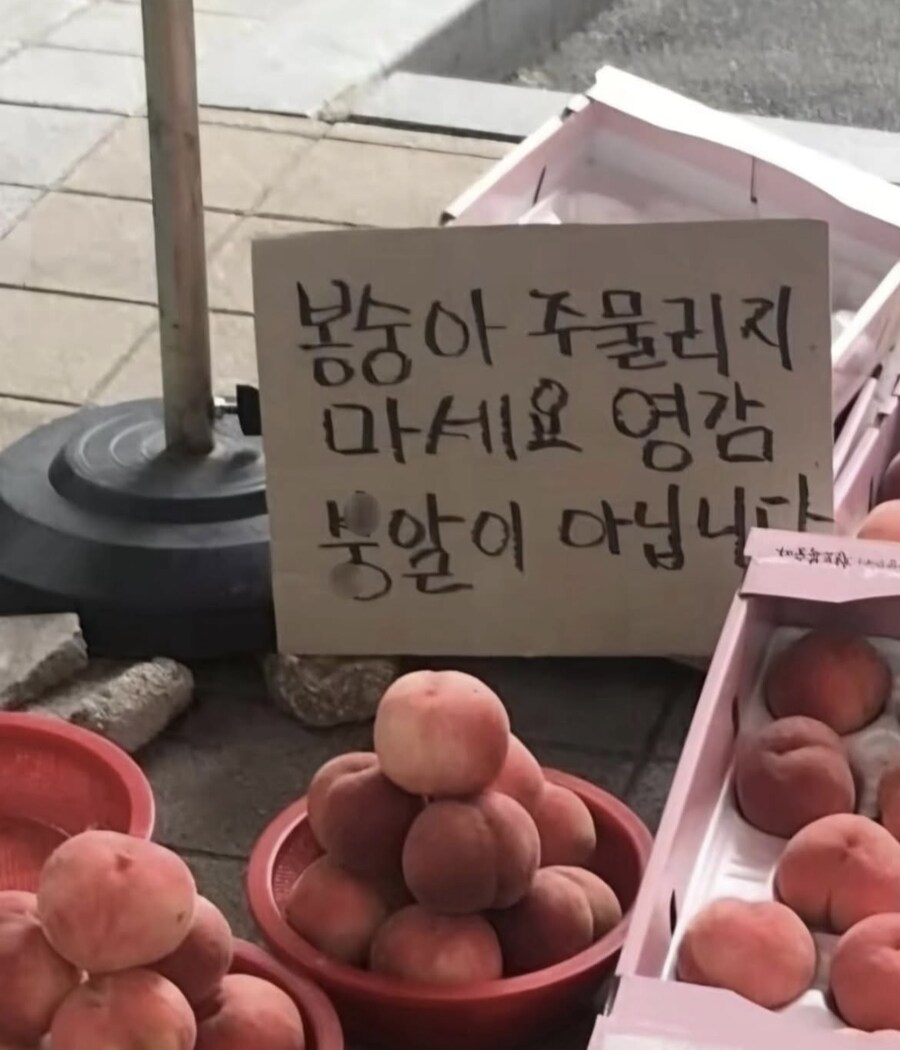 봉숭아 주물리지
마세요 영감
붕알이 아닙니다